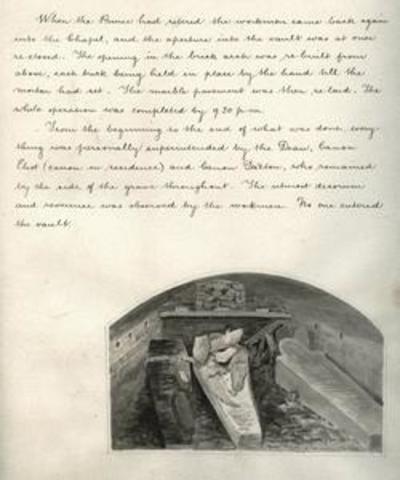 When the Prince had retired the workmen came back again
into the Chapel, and the aperture into the vault was at once
re-closed. The opening in the brick arch was re-built from
above, each brick being held in place by the hand till the
mortar had set. The marble pavement was then re-laid. The
whole operation was completed by 7.30 p.m.
From the beginning to the end of what was done, every-
thing was personally superintended by the Dean, Canon
Eliot (canon in residence) and Canon Dalton, who remained
by the side of the grave throughout. The utmost decorum
and reverence was observed by the workmen. No one entered
the vault.